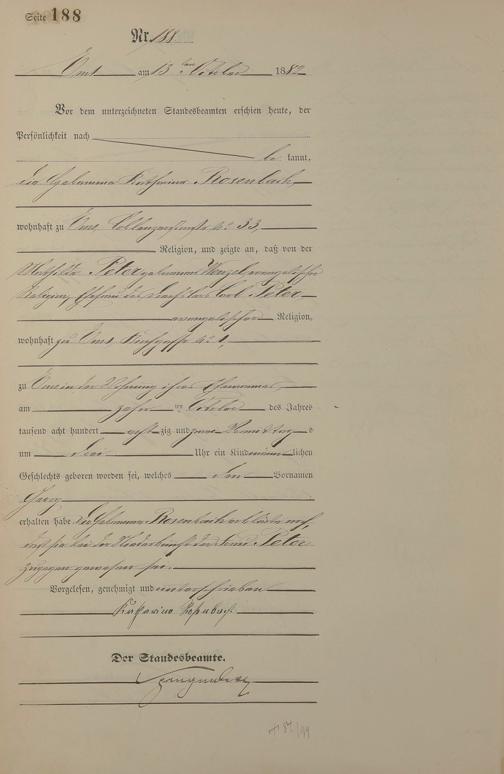 Seite 188
Nr. 188
Ems am 13 ten October 1882
Vor dem unterzeichneten Standesbeamten erschien heute, der
Persönlichkeit nach
be kannt,
die Hebamme Katharina Rosenbach
wohnhaft zu Ems, Coblenzerstraße No 33,
Religion, und zeigte an, daß von der
Peter geborenen Wenzel evangelischer
Religion, Ehefrau des Carl Peter
evangelischer Religion,
wohnhaft zu Ems Kirchgasse No 1,
zu Ems in der Wohnung ihres Ehemannes,
am zehn ten October des Jahres
tausend acht hundert acht zig und zwei Vormittags
um drei Uhr ein Kind männlichen
Geschlechts geboren worden sei, welches den Vornamen
Georg
erhalten habe. Die Hebamme Rosenbach erklärte noch,
daß sie bei der Niederkunft der Frau Peter
zugegen gewesen sei.
Vorgelesen, genehmigt und unterschrieben
Katharina Rosenbach
Der Standesbeamte.